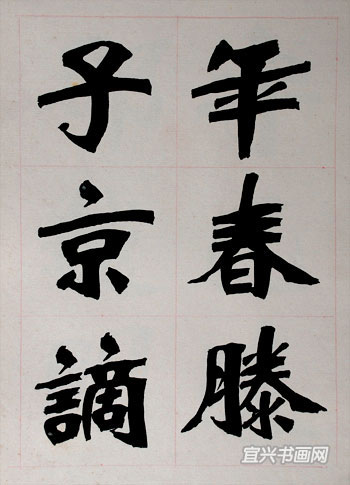 年春滕
子京謫
宜兴书画网